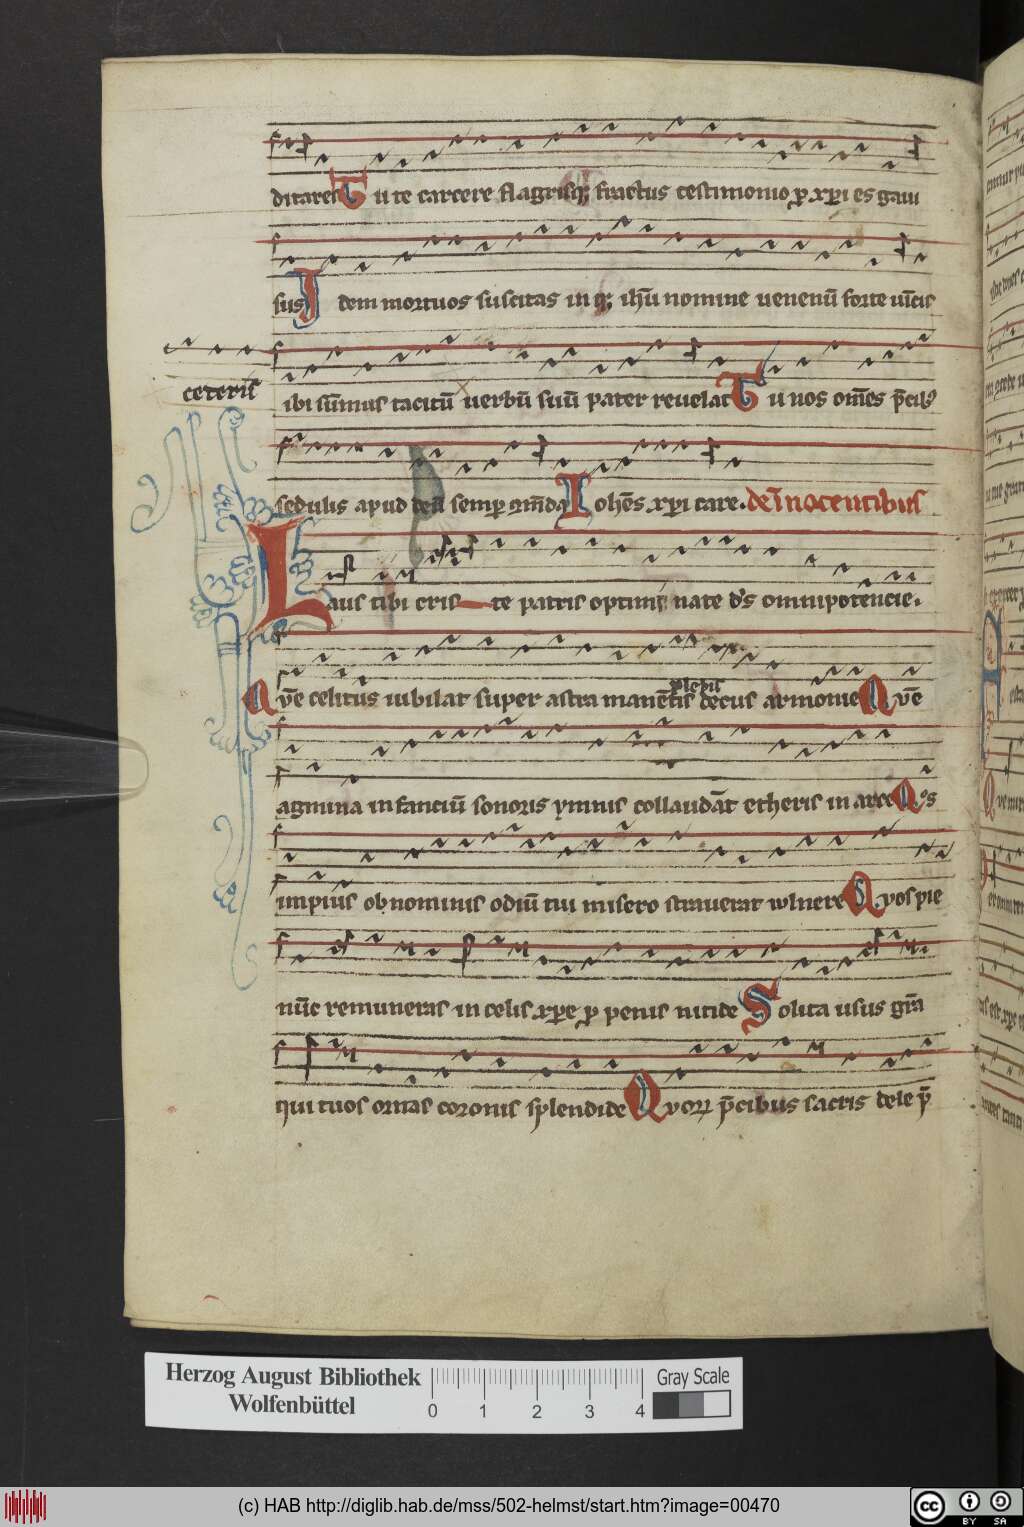 ditares Tu te carcere flagrisq; fractus testimonio ꝑ xp̄i es gaui
sus Idem mortuos suscitas inq; ih̄u nomine uenenū forte uīcis
ceteris
ibi sūmus tacitū uerbū suū pater reuelat Tu nos om̄es p̄cibꝰ
sedulis apud deū semꝑ cōm̄da Ioh̄es xp̄i care. de īnocentibus
Laus tibi cris te patris optimi nate ds̄ omnipotencie.
plebis
Qūe celitus iubilat super astra manētis decus armonie Qūe
agmina infanciū sonoris ymnis collaudāt etheris in arce Qͦs
impius ob nominis odiū tui misero strauerat wlnere Quos pie
nūc remuneras in celis xp̄e ꝓ penis nitide Solita usus gr̄a
qui tuos ornas coronis splendide Quoꝝ p̄cibus sacris dele p̄
Herzog August Bibliothek
Wolfenbüttel
0 1 2 3 4
Gray Scale
(c) HAB http://diglib.hab.de/mss/502-helmst/start.htm?image=00470
cc BY SA